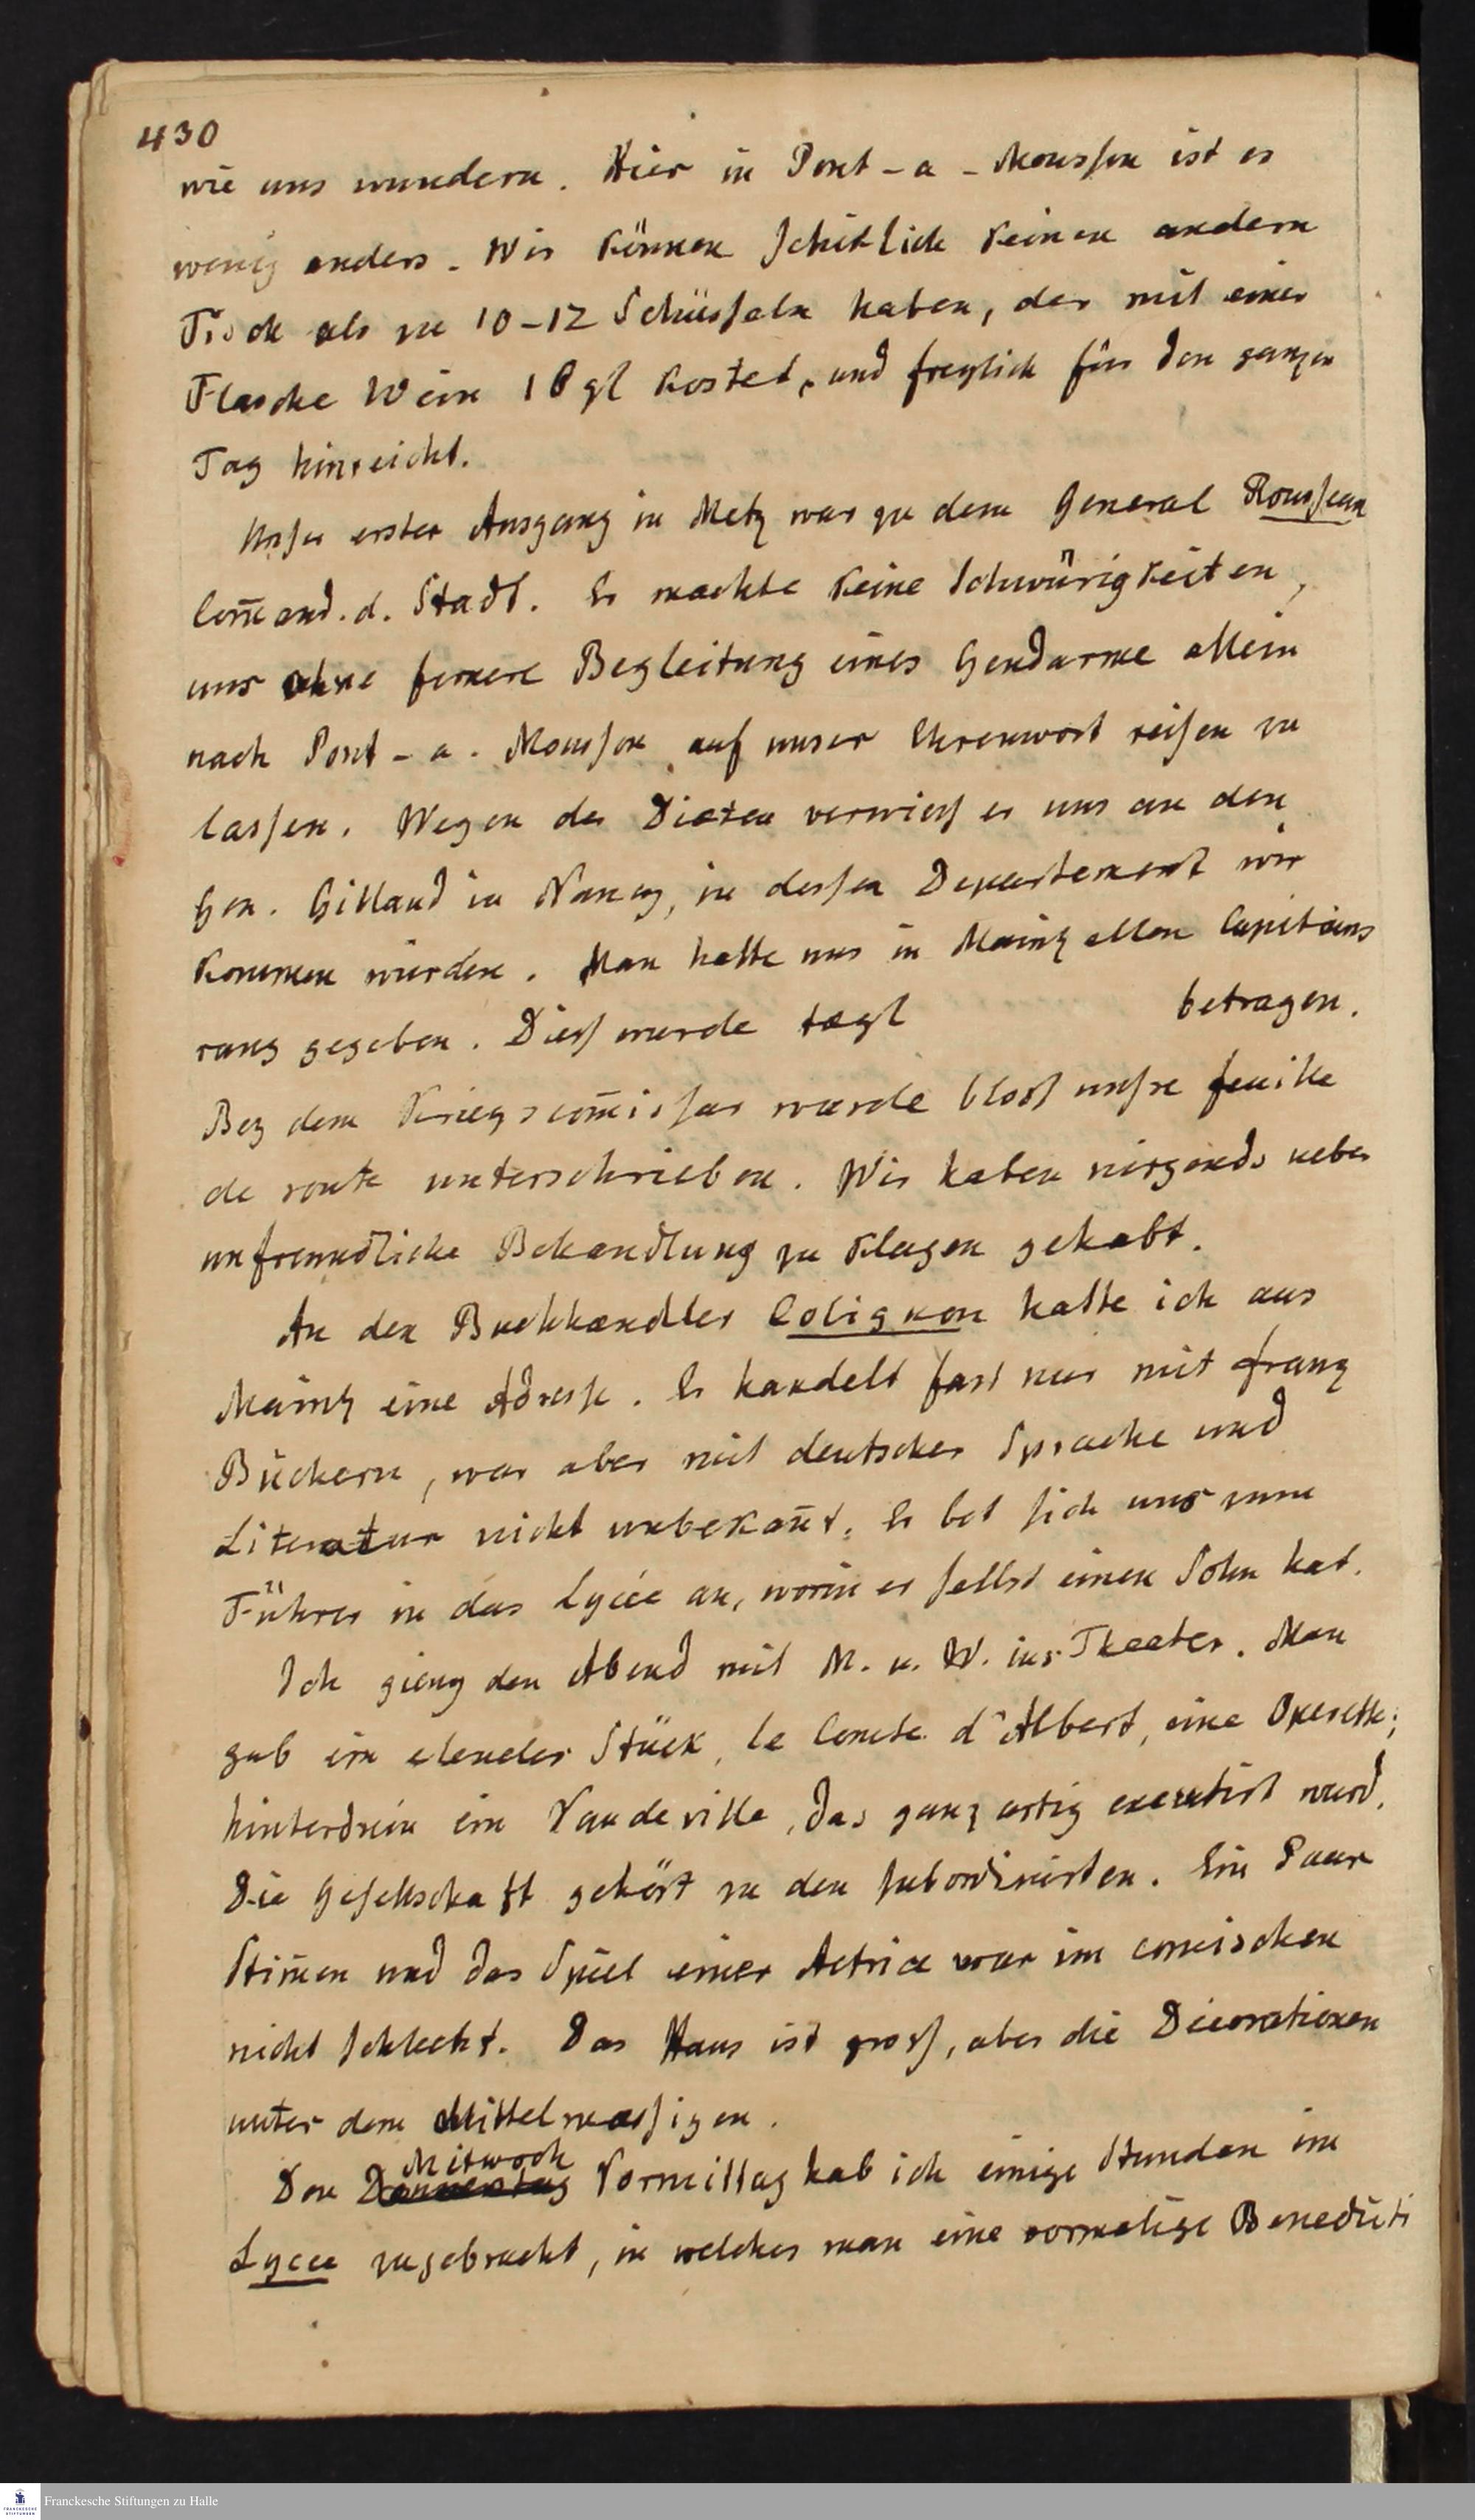 430
wie uns wundern. Hier in Pont-a-Mousson ist es
wenig anders. Wir können schiklich keinen andern
Tisch als zu 10-12 Schüsseln haben, der mit einer
Flasche Wein 18 gl kostet, und freylich für den ganzen
Tag hinreicht.
Unser erster Ausgang in Metz war zu dem General Rousseau
Com̄and. d. Stadt. Er machte keine Schwürigkeiten,
uns ohne fernere Begleitung eines Gendarme allein
nach Pont-a-Mousson auf unser Ehrenwort reisen zu
lassen. Wegen der Diæten verwiess er uns an den
Gen. Gilland in Nancy, in dessen Departement wir
kommen würden. Man hatte uns in Mainz allen Capitäns
rang gegeben. Diess wurde tægl betragen.
Bey dem Kriegscom̄issar wurde bloss unsre feuille
de route unterschrieben. Wir haben nirgends ueber
unfreundliche Behandlung zu klagen gehabt.
An den Buchhændler Colignon hatte ich aus
Mainz eine Adresse. Er handelt fast nur mit franz
Büchern, war aber mit deutscher Sprache und
Literatur nicht unbekan̄t. Er bot sich uns zum
Führer in das Lycée an, worin er selbst einen Sohn hat.
Ich gieng den Abend mit M. u. W. ins Theater. Man
gab ein elendes Stück, le Comte d'Albert, eine Operette;
hinterdrein ein Vaudeville, das ganz artig executirt ward.
Die Gesellschaft gehört zu den subordinirten. Ein Paar
Stim̄en und das Spiel einer Actrice war im comischen
nicht schlecht. Das Haus ist gross, aber die Decorationen
unter dem Mittelmæssigen.
Mitwoch
Den Donnerstag Vormittag hab ich einige Stunden im
Lycee zugebracht, in welches man eine vormalige Benedicti
Franckesche Stiftungen zu Halle